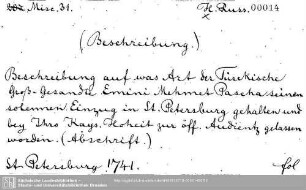 Misc. 31.
H. Russ. 00014
(Beschreibung.)
Beschreibung auf was Art der Türckische
Groß-Gesandte Emini Mehmet Pascha seinen
solennen Einzug in St. Petersburg gehalten und
bey Ihro Kays. Hoheit zur öff. Audientz gelassen
worden. (Abschrift.)
St. Petersburg 1741.
fol
Sächsische Landesbibliothek -
Staats- und Universitätsbibliothek Dresden